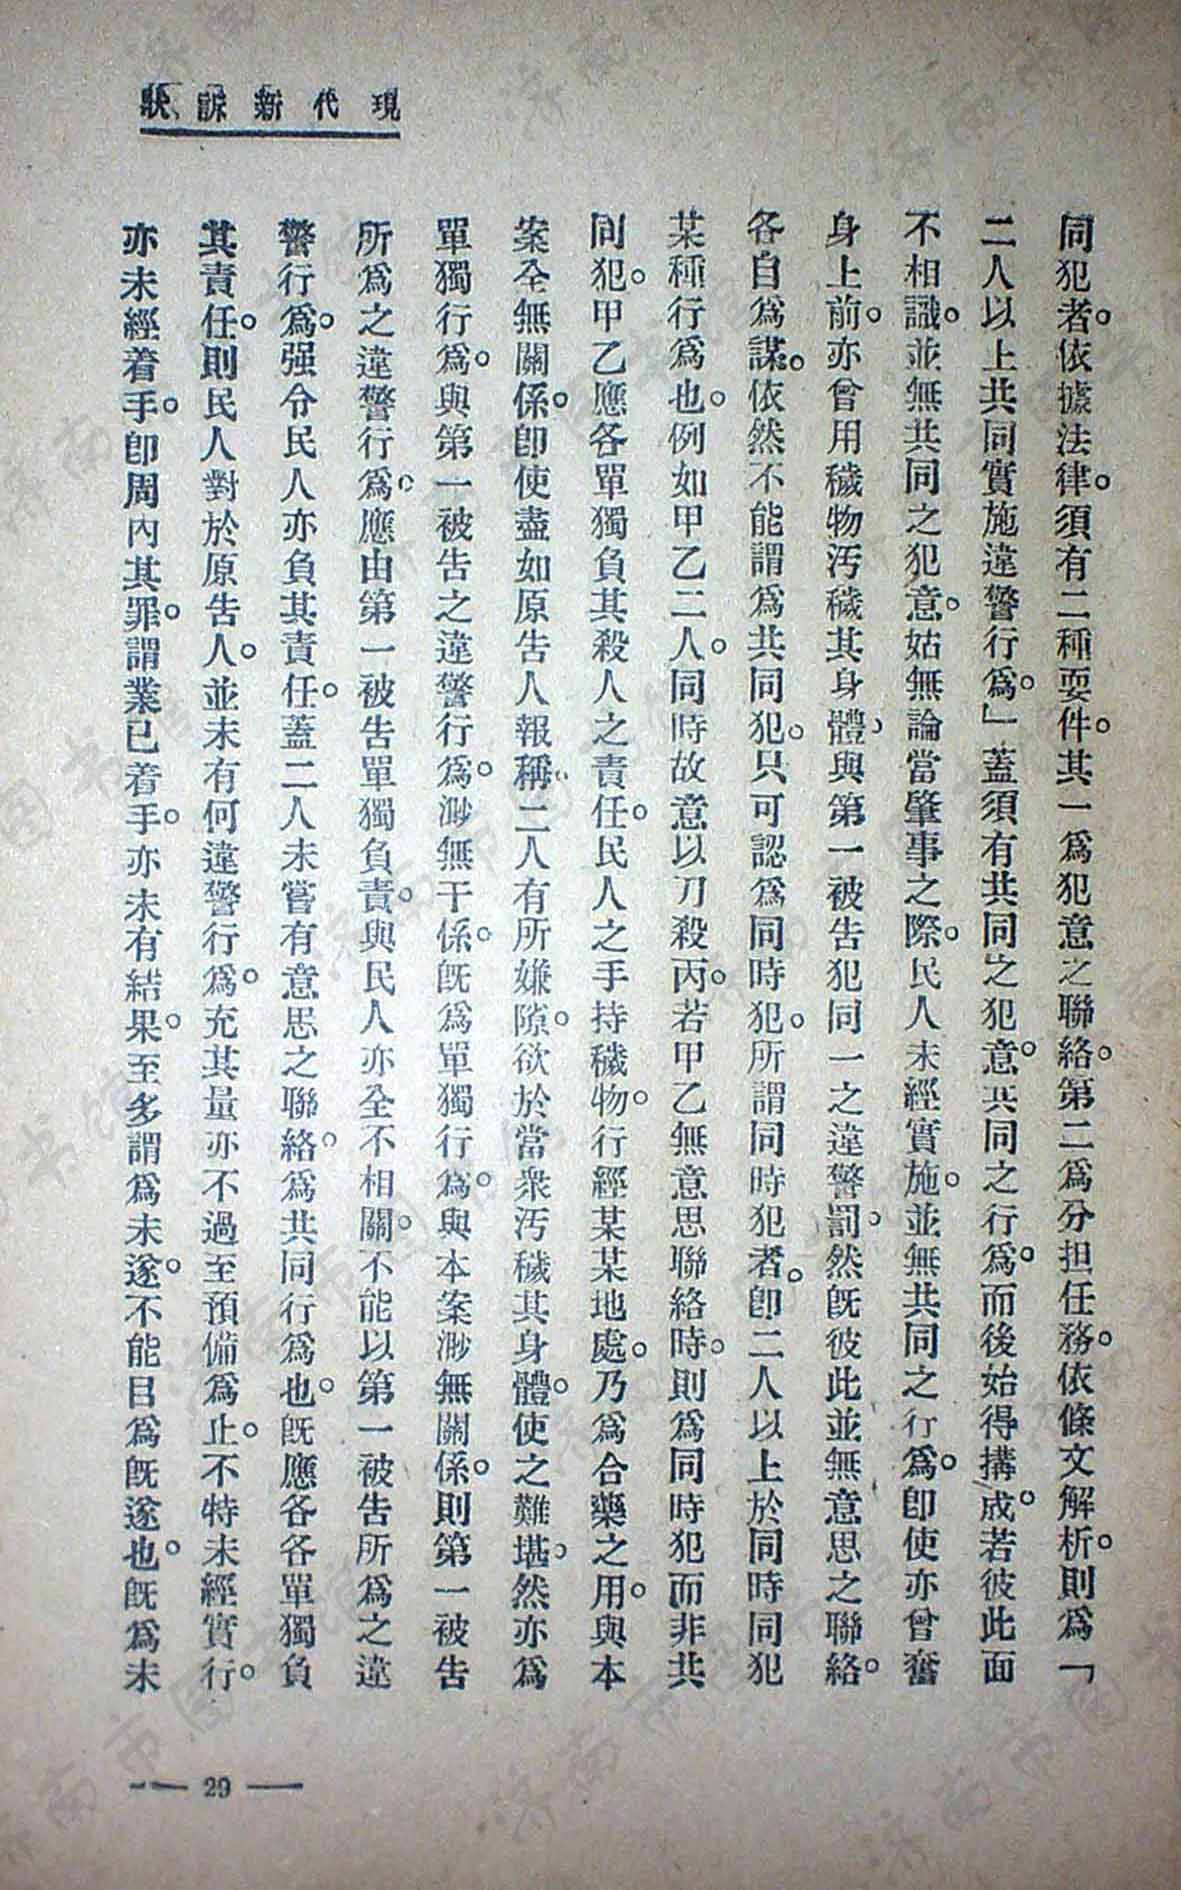 現代新訴狀
同犯者。依據法律。須有二種要件。其一爲犯意之聯絡。第二爲分担任務。依條文解析。則爲「
二人以上共同實施違警行爲。」蓋須有共同之犯意。共同之行爲。而後始得搆成。若彼此面
不相識。並無共同之犯意。姑無論當肇事之際。民人未經實施。並無共同之行爲。卽使亦曾奮
身上前。亦曾用穢物汚穢其身體。與第一被告犯同一之違警罰。然旣彼此並無意思之聯絡。
各自爲謀。依然不能謂爲共同犯。只可認爲同時犯。所謂同時犯者。卽二人以上於同時同犯
某種行爲也。例如甲乙二人。同時故意以刀殺丙。若甲乙無意思聯絡時。則爲同時犯而非共
同犯。甲乙應各單獨負其殺人之責任。民人之手持穢物。行經某某地處。乃爲合藥之用。與本
案全無關係。卽使盡如原告人報稱。二人有所嫌隙。欲於當衆汚穢其身體。使之難堪。然亦爲
單獨行爲。與第一被告之違警行爲。渺無干係。旣爲單獨行爲。與本案渺無關係。則第一被告
所爲之違警行爲。應由第一被告單獨負責。與民人亦全不相關。不能以第一被告所爲之違
警行爲。强令民人亦負其責任。蓋二人未嘗有意思之聯絡。爲共同行爲也。旣應各各單獨負
其責任。則民人對於原告人。並未有何違警行爲。充其量亦不過至預備爲止。不特未經實行。
亦未經着手。卽周內其罪。謂業已着手。亦未有結果。至多謂爲未遂。不能目爲旣遂也。旣爲未
— 29 —